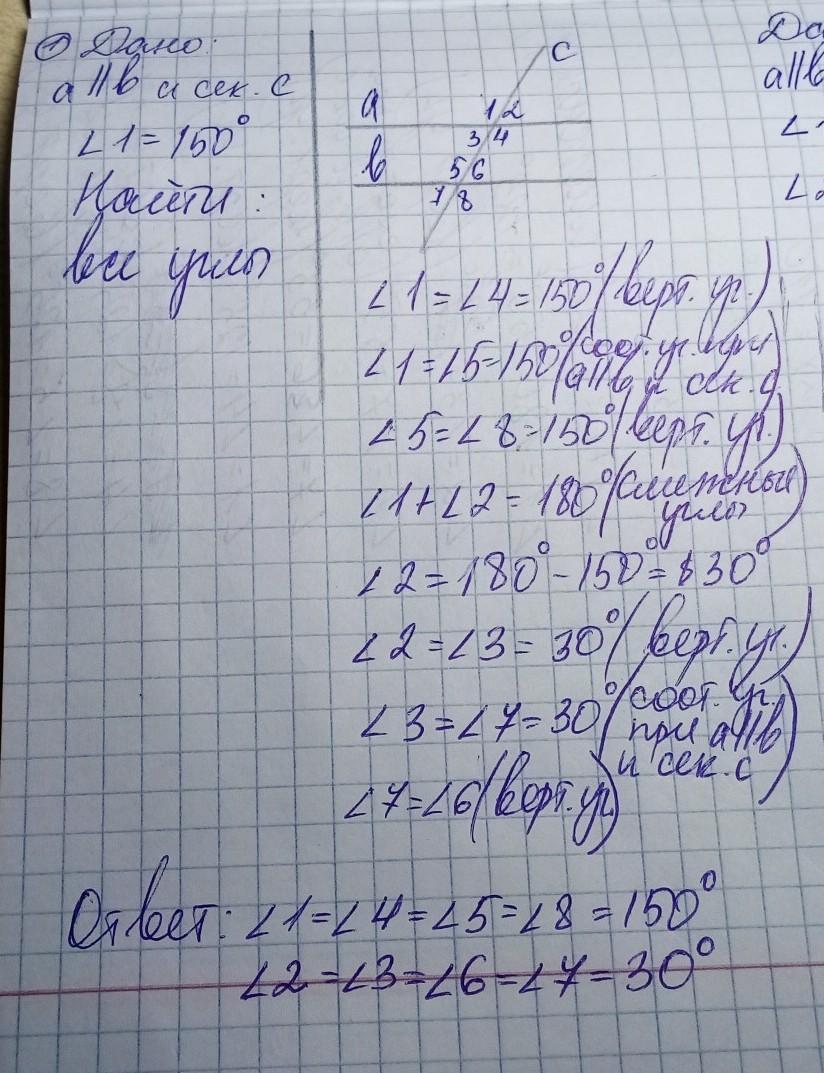 ① Дано:
a || b и сек. c
∠1 = 150°
Найти:
все углы
c
a 1 2
3 4
b 5 6
7 8
∠1 = ∠4 = 150° (верт. уг.)
∠1 = ∠5 = 150° (соот. уг. при
a || b и сек. c)
∠5 = ∠8 = 150° (верт. уг.)
∠1 + ∠2 = 180° (смежные
углы)
∠2 = 180° - 150° = 30°
∠2 = ∠3 = 30° (верт. уг.)
∠3 = ∠7 = 30° (соот. уг.
при a || b
и сек. c)
∠7 = ∠6 (верт. уг)
Ответ: ∠1 = ∠4 = ∠5 = ∠8 = 150°
∠2 = ∠3 = ∠6 = ∠7 = 30°
a || b